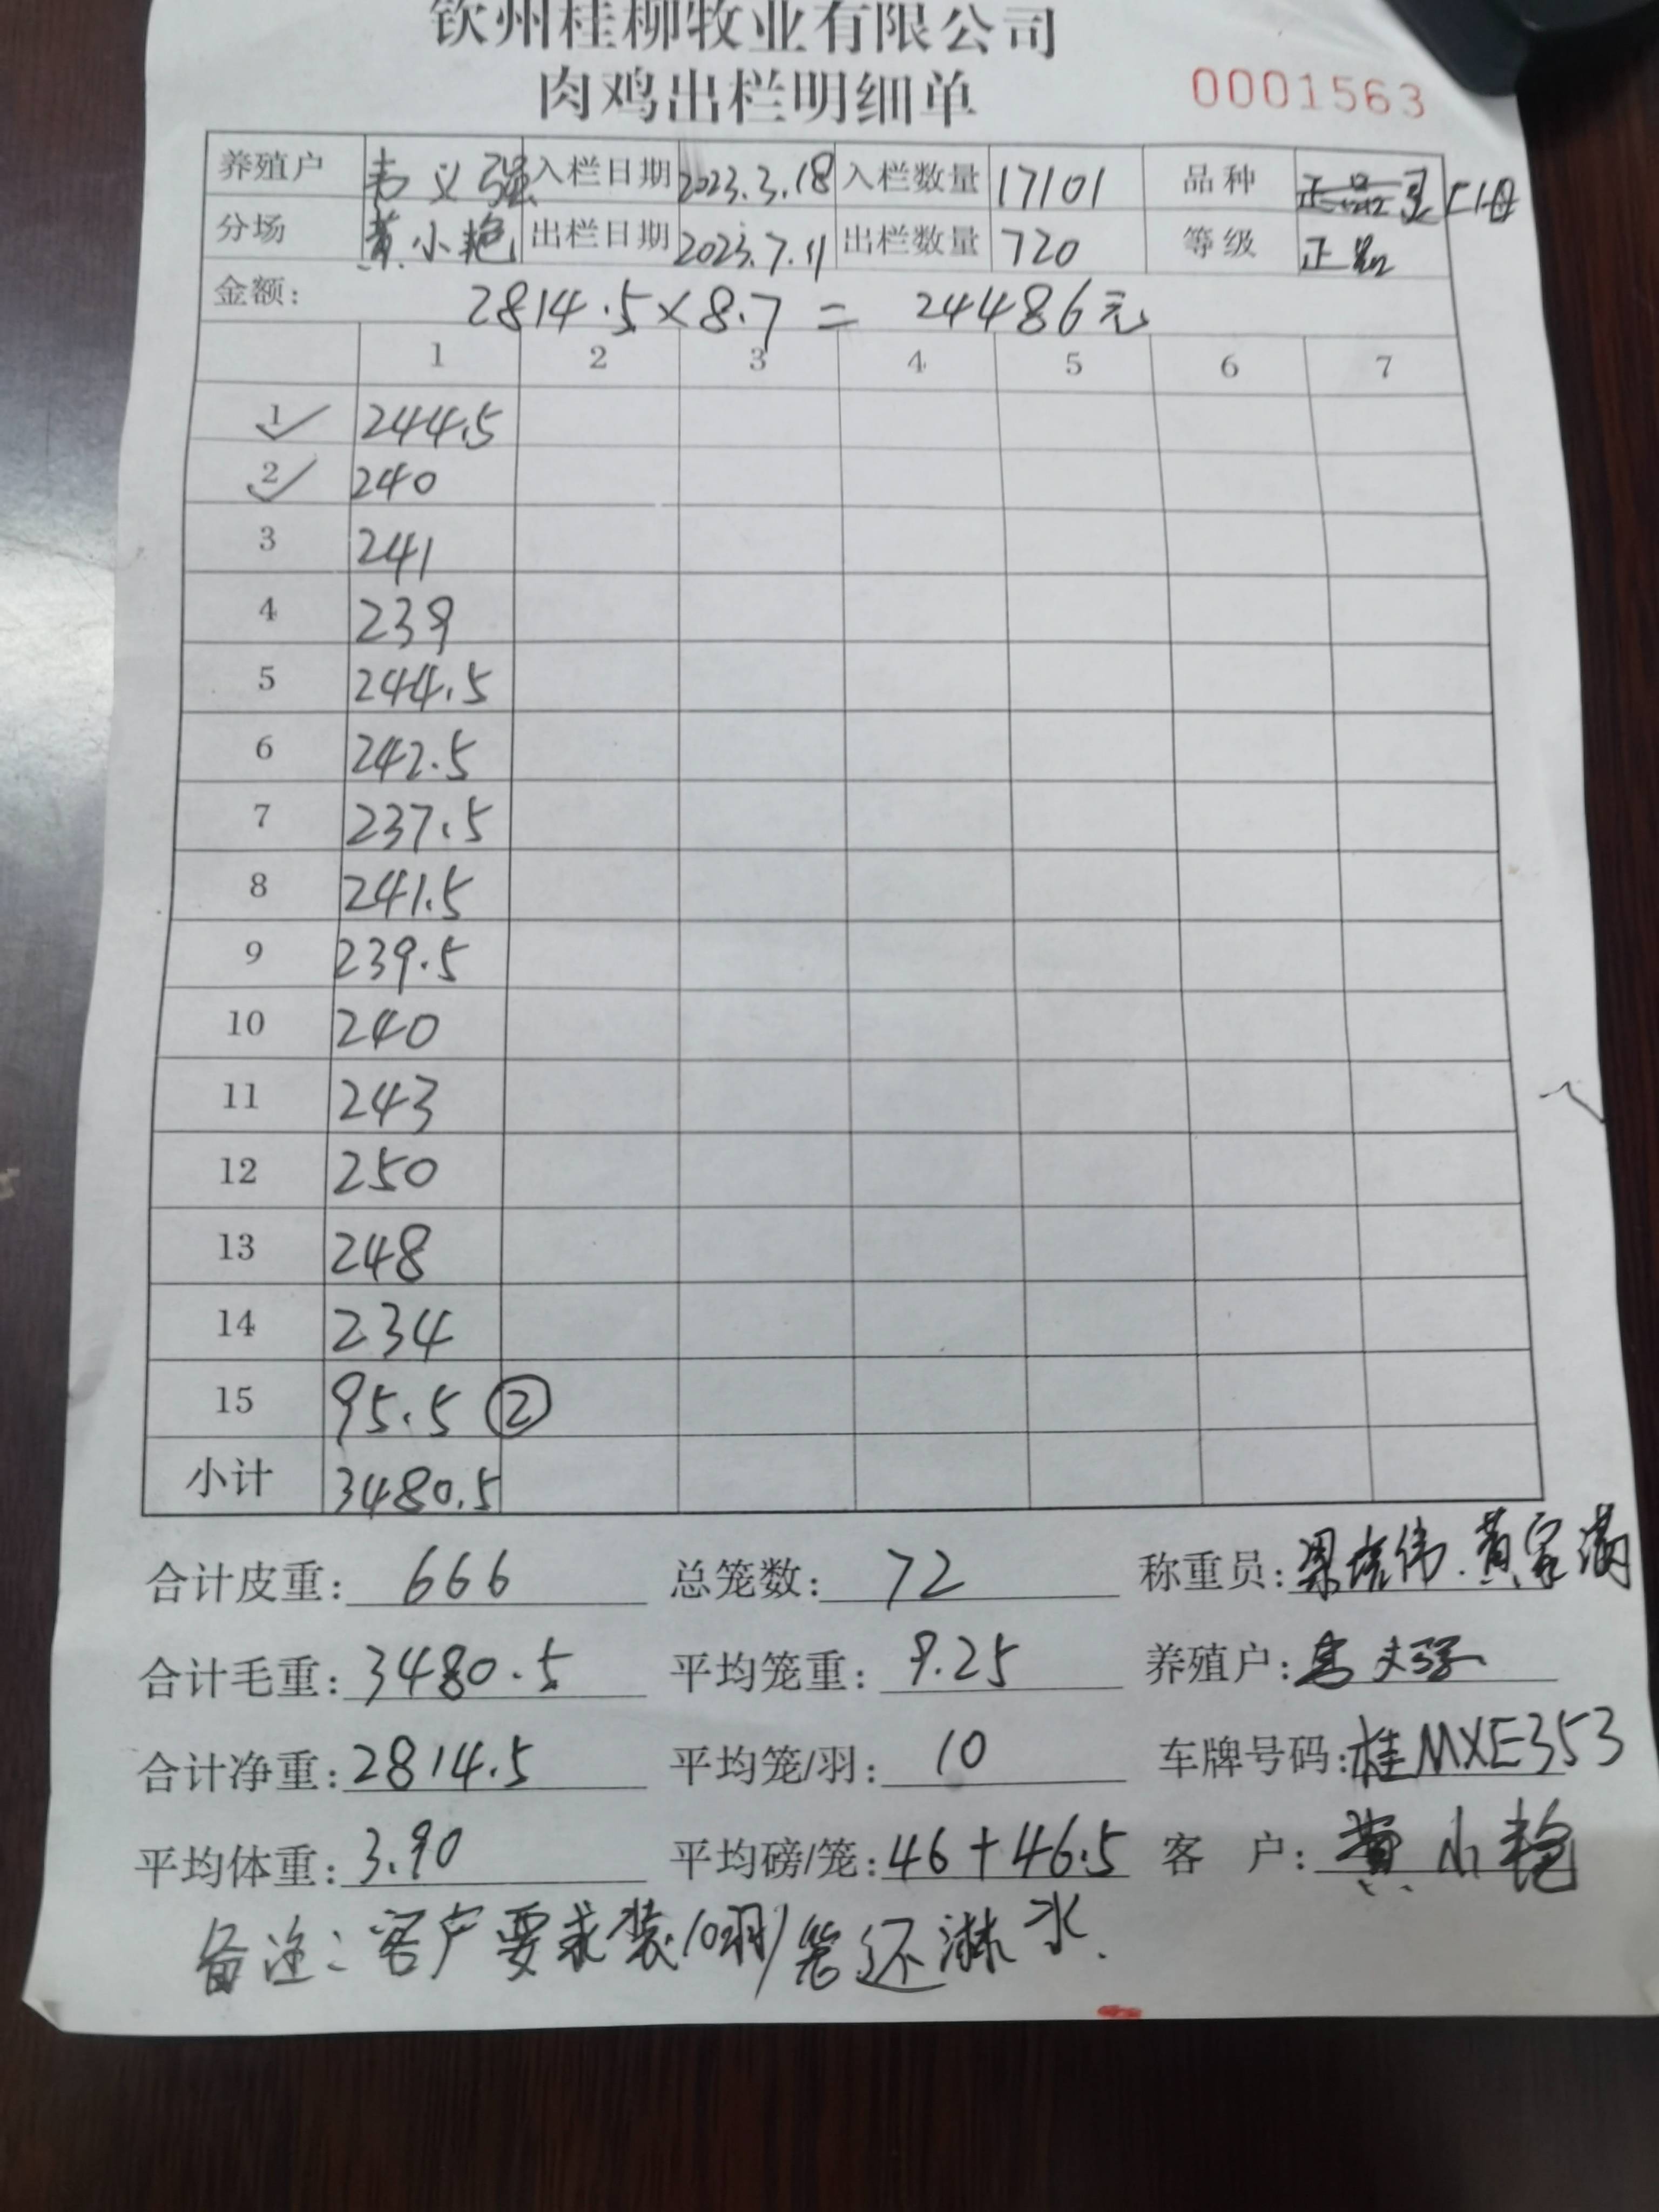 钦州桂柳牧业有限公司
肉鸡出栏明细单 0001563
养殖户 韦义强 入栏日期 2023.3.18 入栏数量 17101 品种
分场 黄小艳 出栏日期 2023.7.11 出栏数量 720 等级 正品
金额： 2814.5×8.7 = 24486元
1 2 3 4 5 6 7
1 ✓ 244.5
2 ✓ 240
3 241
4 239
5 244.5
6 242.5
7 237.5
8 241.5
9 239.5
10 240
11 243
12 250
13 248
14 234
15 95.5 ②
小计 3480.5
合计皮重： 666 总笼数： 72 称重员： 黄家满
合计毛重： 3480.5 平均笼重： 9.25 养殖户： 韦义强
合计净重： 2814.5 平均笼/羽： 10 车牌号码： 桂MXE353
平均体重： 3.90 平均磅/笼： 46+46.5 客 户： 黄小艳
备注：客户要求装10羽/笼还淋水.